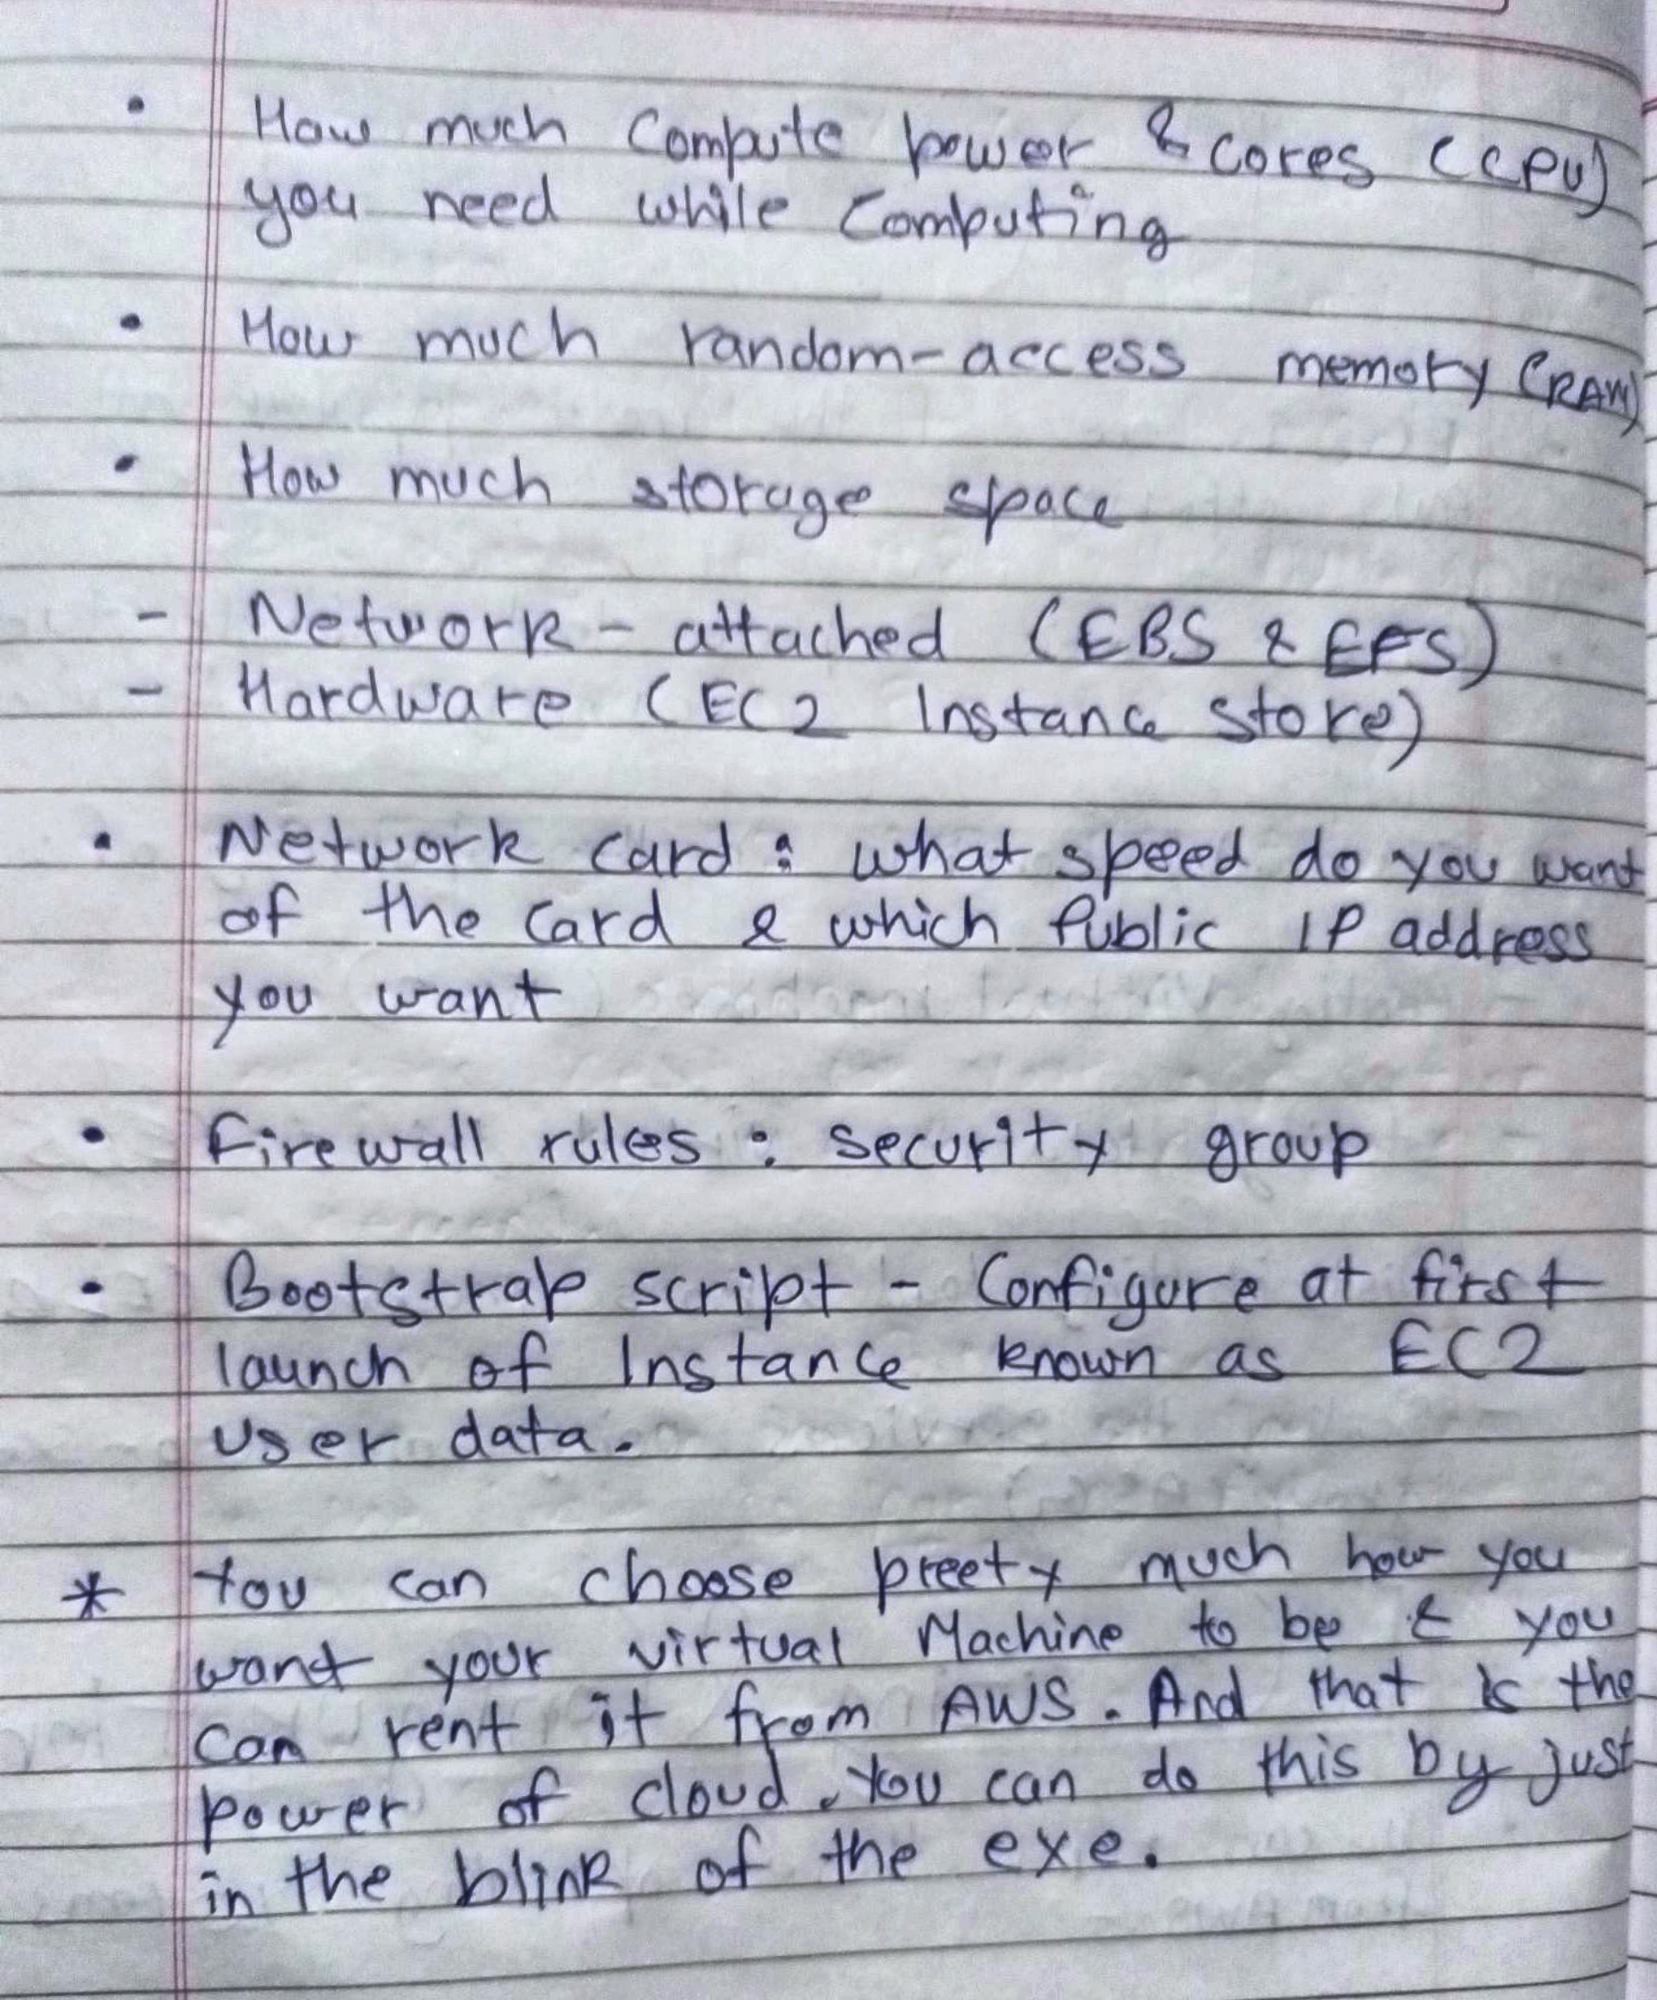 • How much Compute power & cores (CPU)
you need while Computing
• How much random-access memory (RAM)
• How much storage space
- Network-attached (EBS & EFS)
- Hardware (EC2 Instance store)
• Network card : what speed do you want
of the card & which Public IP address
you want
• Firewall rules : security group
• Bootstrap script - Configure at first
launch of Instance known as EC2
user data.
* You can choose preety much how you
want your virtual Machine to be & you
can rent it from AWS. And that is the
power of cloud. You can do this by just
in the blink of the exe.